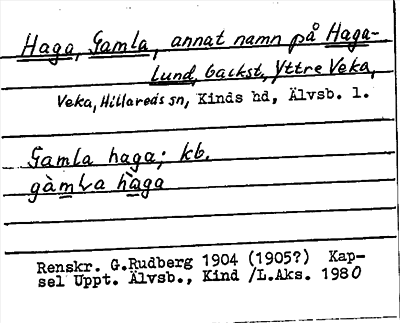 Haga, Gamla, annat namn på Haga-
Lund, backst., Yttre Veka,
Veka, Hillareds sn, Kinds hd, Älvsb. l.
Gamla haga; kb.
gàmla hàga
Renskr. G.Rudberg 1904 (1905?) Kap-
sel Uppt. Älvsb., Kind /L.Aks. 1980